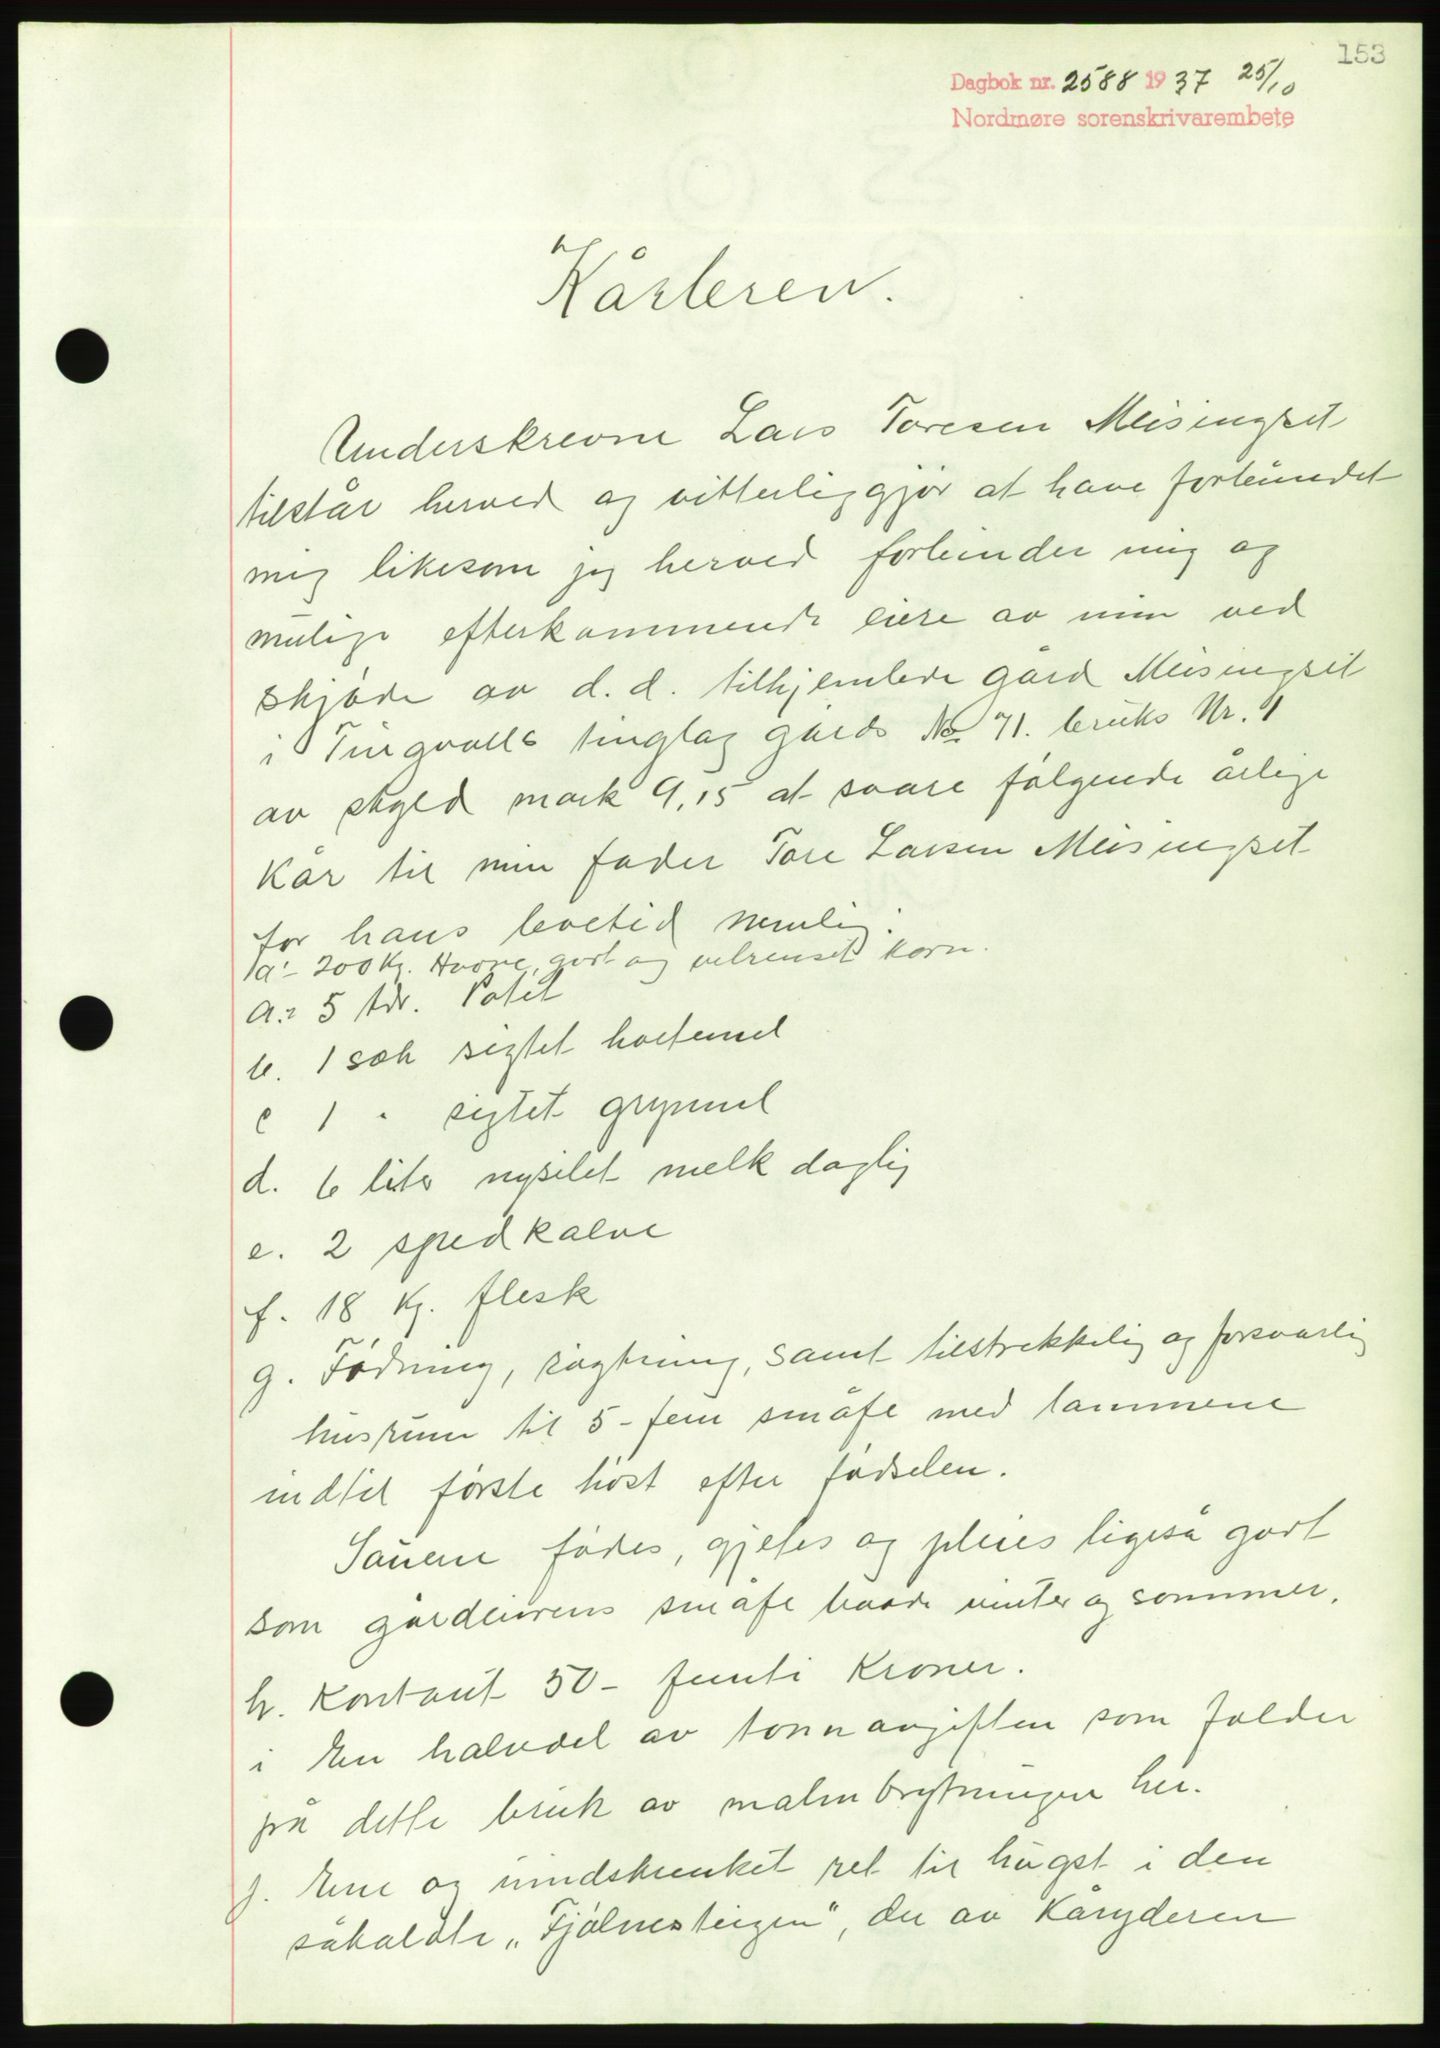 153
Dagbok nr. 2588 1937 25/10
Nordmøre sorenskrivarembete
Kårbrev.
Underskrevne Lars Toresen Meisingset
tilstår herved og vitterliggjør at have forbundet
mig likesom jeg herved forbinder mig og
mulige efterkommende eiere av min ved
skjøde av d.d. tilhjemlede gård Meisingset
i Tingvolls tinglag gårds No 71. bruks Nr. 1
av skyld mark 9,15 at svare følgende årlige
Kår til min fader Tore Larsen Meisingset
for hans levetid nemlig:
1a:- 200 Kg. Havre, godt og velrenset korn.
a:- 5 tdr. Potet
b. 1 sæk sigtet hvetemel
c 1 " sigtet grynmel
d. 6 liter nysilet melk daglig
e. 2 spedkalve
f. 18 Kg. flesk
g. Fødning, røgtning, samt tilstrekkelig og forsvarlig
husrum til 5 - fem småfe med lammene
indtil første høst efter fødselen.
Sauene fødes, gjetes og pleies ligeså godt
som gårdeierens småfe baade vinter og sommer.
h. Kontant 50 - femti Kroner.
i En halvdel av tonnavgiften som falder
på dette bruk av malmbrytningen her.
j. Ene og uindskrenket ret til hugst i den
såkaldte "Fjølnesteigen", der av Kåryderen